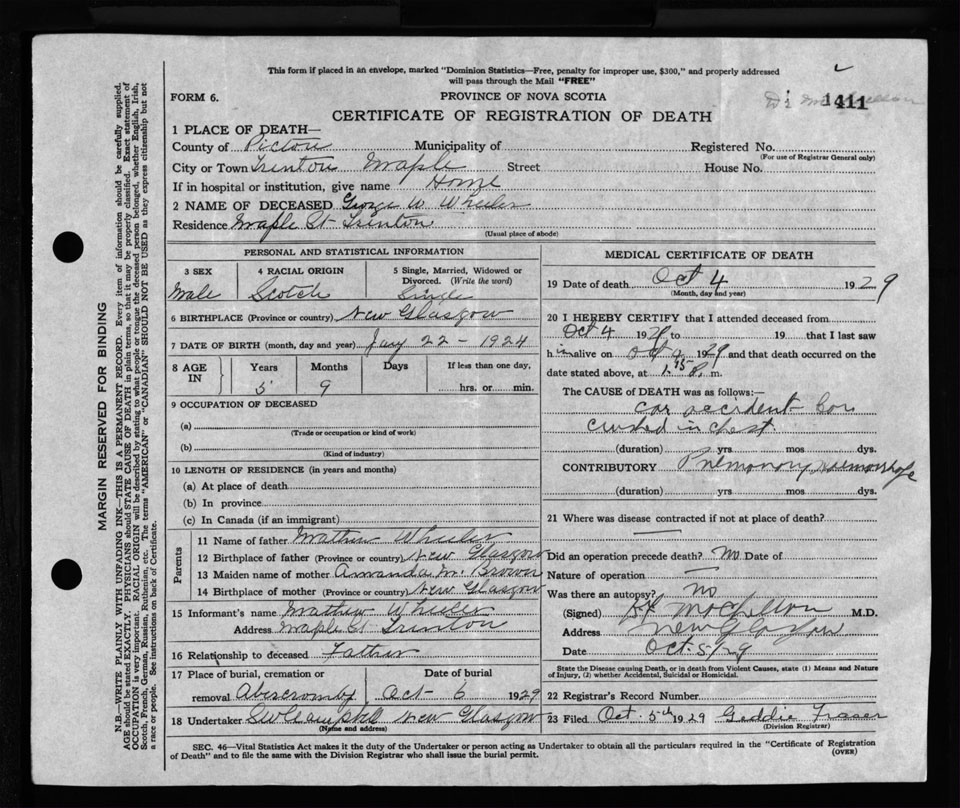 This form if placed in an envelope, marked "Dominion Statistics—Free, penalty for improper use, $300," and properly addressed
will pass through the Mail "FREE"
FORM 6.
PROVINCE OF NOVA SCOTIA
1411
CERTIFICATE OF REGISTRATION OF DEATH
1 PLACE OF DEATH—
County of Pictou Municipality of Registered No.
(For use of Registrar General only)
City or Town Trenton Maple Street House No.
If in hospital or institution, give name Home
2 NAME OF DECEASED George W Wheeler
Residence Maple St Trenton
(Usual place of abode)
PERSONAL AND STATISTICAL INFORMATION
3 SEX 4 RACIAL ORIGIN 5 Single, Married, Widowed or
Divorced. (Write the word)
Male Scotch Single
6 BIRTHPLACE (Province or country) New Glasgow
7 DATE OF BIRTH (month, day and year) Jany 22 - 1924
8 AGE IN Years Months Days If less than one day,
5 9 hrs. or min.
9 OCCUPATION OF DECEASED
(a)
(Trade or occupation or kind of work)
(b)
(Kind of industry)
10 LENGTH OF RESIDENCE (in years and months)
(a) At place of death
(b) In province
(c) In Canada (if an immigrant)
Parents
11 Name of father Mathew Wheeler
12 Birthplace of father (Province or country) New Glasgow
13 Maiden name of mother Amanda M. Brown
14 Birthplace of mother (Province or country) New Glasgow
15 Informant's name Mathew Wheeler
Address Maple St Trenton
16 Relationship to deceased Father
17 Place of burial, cremation or Date of burial
removal Abercromby Oct 6 1929
18 Undertaker New Glasgow
(Name and address)
MEDICAL CERTIFICATE OF DEATH
19 Date of death Oct 4 1929
(Month, day and year)
20 I HEREBY CERTIFY that I attended deceased from
Oct 4 1929 to 19 that I last saw
him alive on Oct 4 1929 and that death occurred on the
date stated above, at 1.15 P. m.
The CAUSE OF DEATH was as follows:—
car accident
crushed in chest.
(duration) yrs mos dys.
CONTRIBUTORY Pulmonary Hemorrhage
(duration) yrs mos dys.
21 Where was disease contracted if not at place of death?
Did an operation precede death? No Date of
Nature of operation
Was there an autopsy? No
(Signed) M.D.
Address New Glasgow
Date Oct 5/29
State the Disease causing Death, or in death from Violent Causes, state (1) Means and Nature
of Injury, (2) whether Accidental, Suicidal or Homicidal.
22 Registrar's Record Number
23 Filed Oct. 5th 1929 Geddie Fraser
(Division Registrar)
SEC. 46—Vital Statistics Act makes it the duty of the Undertaker or person acting as Undertaker to obtain all the particulars required in the "Certificate of Registration
of Death" and to file the same with the Division Registrar who shall issue the burial permit.
(OVER)
MARGIN RESERVED FOR BINDING
N.B.—WRITE PLAINLY WITH UNFADING INK—THIS IS A PERMANENT RECORD. Every item of information should be carefully supplied.
AGE should be stated EXACTLY. PHYSICIANS should STATE CAUSE OF DEATH in plain terms, so that it may be properly classified. Exact statement of
OCCUPATION is very important. RACIAL ORIGIN will be described by stating to what people or tongue the deceased person belonged, whether English, Irish,
Scotch, French, German, Russian, Ruthenian, etc. The terms "AMERICAN" or "CANADIAN" SHOULD NOT BE USED as they express citizenship but not
a race or people. See instructions on back of Certificate.